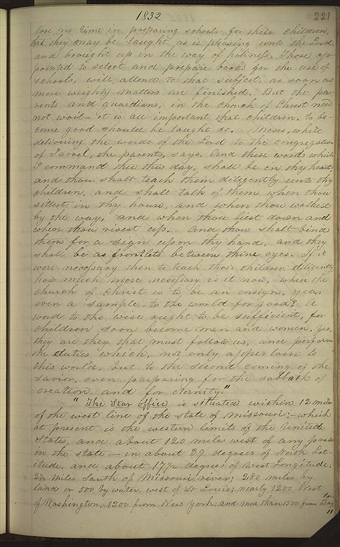 1832
221
lose no time in preparing schools for their children,
that they may be taught, as is pleasing unto the Lord
and brought up in the way of holiness. Those ap-
pointed to select and prepare books for the use of
schools, will attend to that subject, as soon as
more weighty matters are finished. But the pa-
rents and guardians, in the Church of Christ need
not wait - it is all important that children, to be-
come good should be taught so. Moses, while
delivering the words of the Lord to the congregation
of Israel, the parents, says, And these words which
I command thee this day, shall be in thy heart;
and thou shalt teach them diligently unto thy
children, and shalt talk of them when thou
sittest in thy house, and when thou walkest
by the way, and when thou liest down and
when thou risest up. And thou shalt bind
them for a sign upon thy hand, and they
shall be as frontlets between thine eyes. If it
were necessary then to teach their children diligently
how much more necessary is it now, when the
church of Christ is to be an ensign, yea,
even a sample, to the world for good? A
word to the wise ought to be sufficient, for
children soon become men and women. Yes,
they are they that must follow us, and perform
the duties which, not only appertain to
this world, but to the second coming of the
Savior, even preparing for the sabbath of
creation, and for eternity."
"The Star Office is situated within 12 miles
of the west line of the state of Missouri; which
at present is the western limits of the United
States, and about 120 miles west of any
in the state - in about 39 degrees of North Lat-
itude, and about 17½ degrees of West Longitude,
2½ miles South of Missouri river; 280 miles by
land, or 500 by water, west of St Louis; nearly 1200 West
of Washington, 1300 from New York, and more than 1500 from